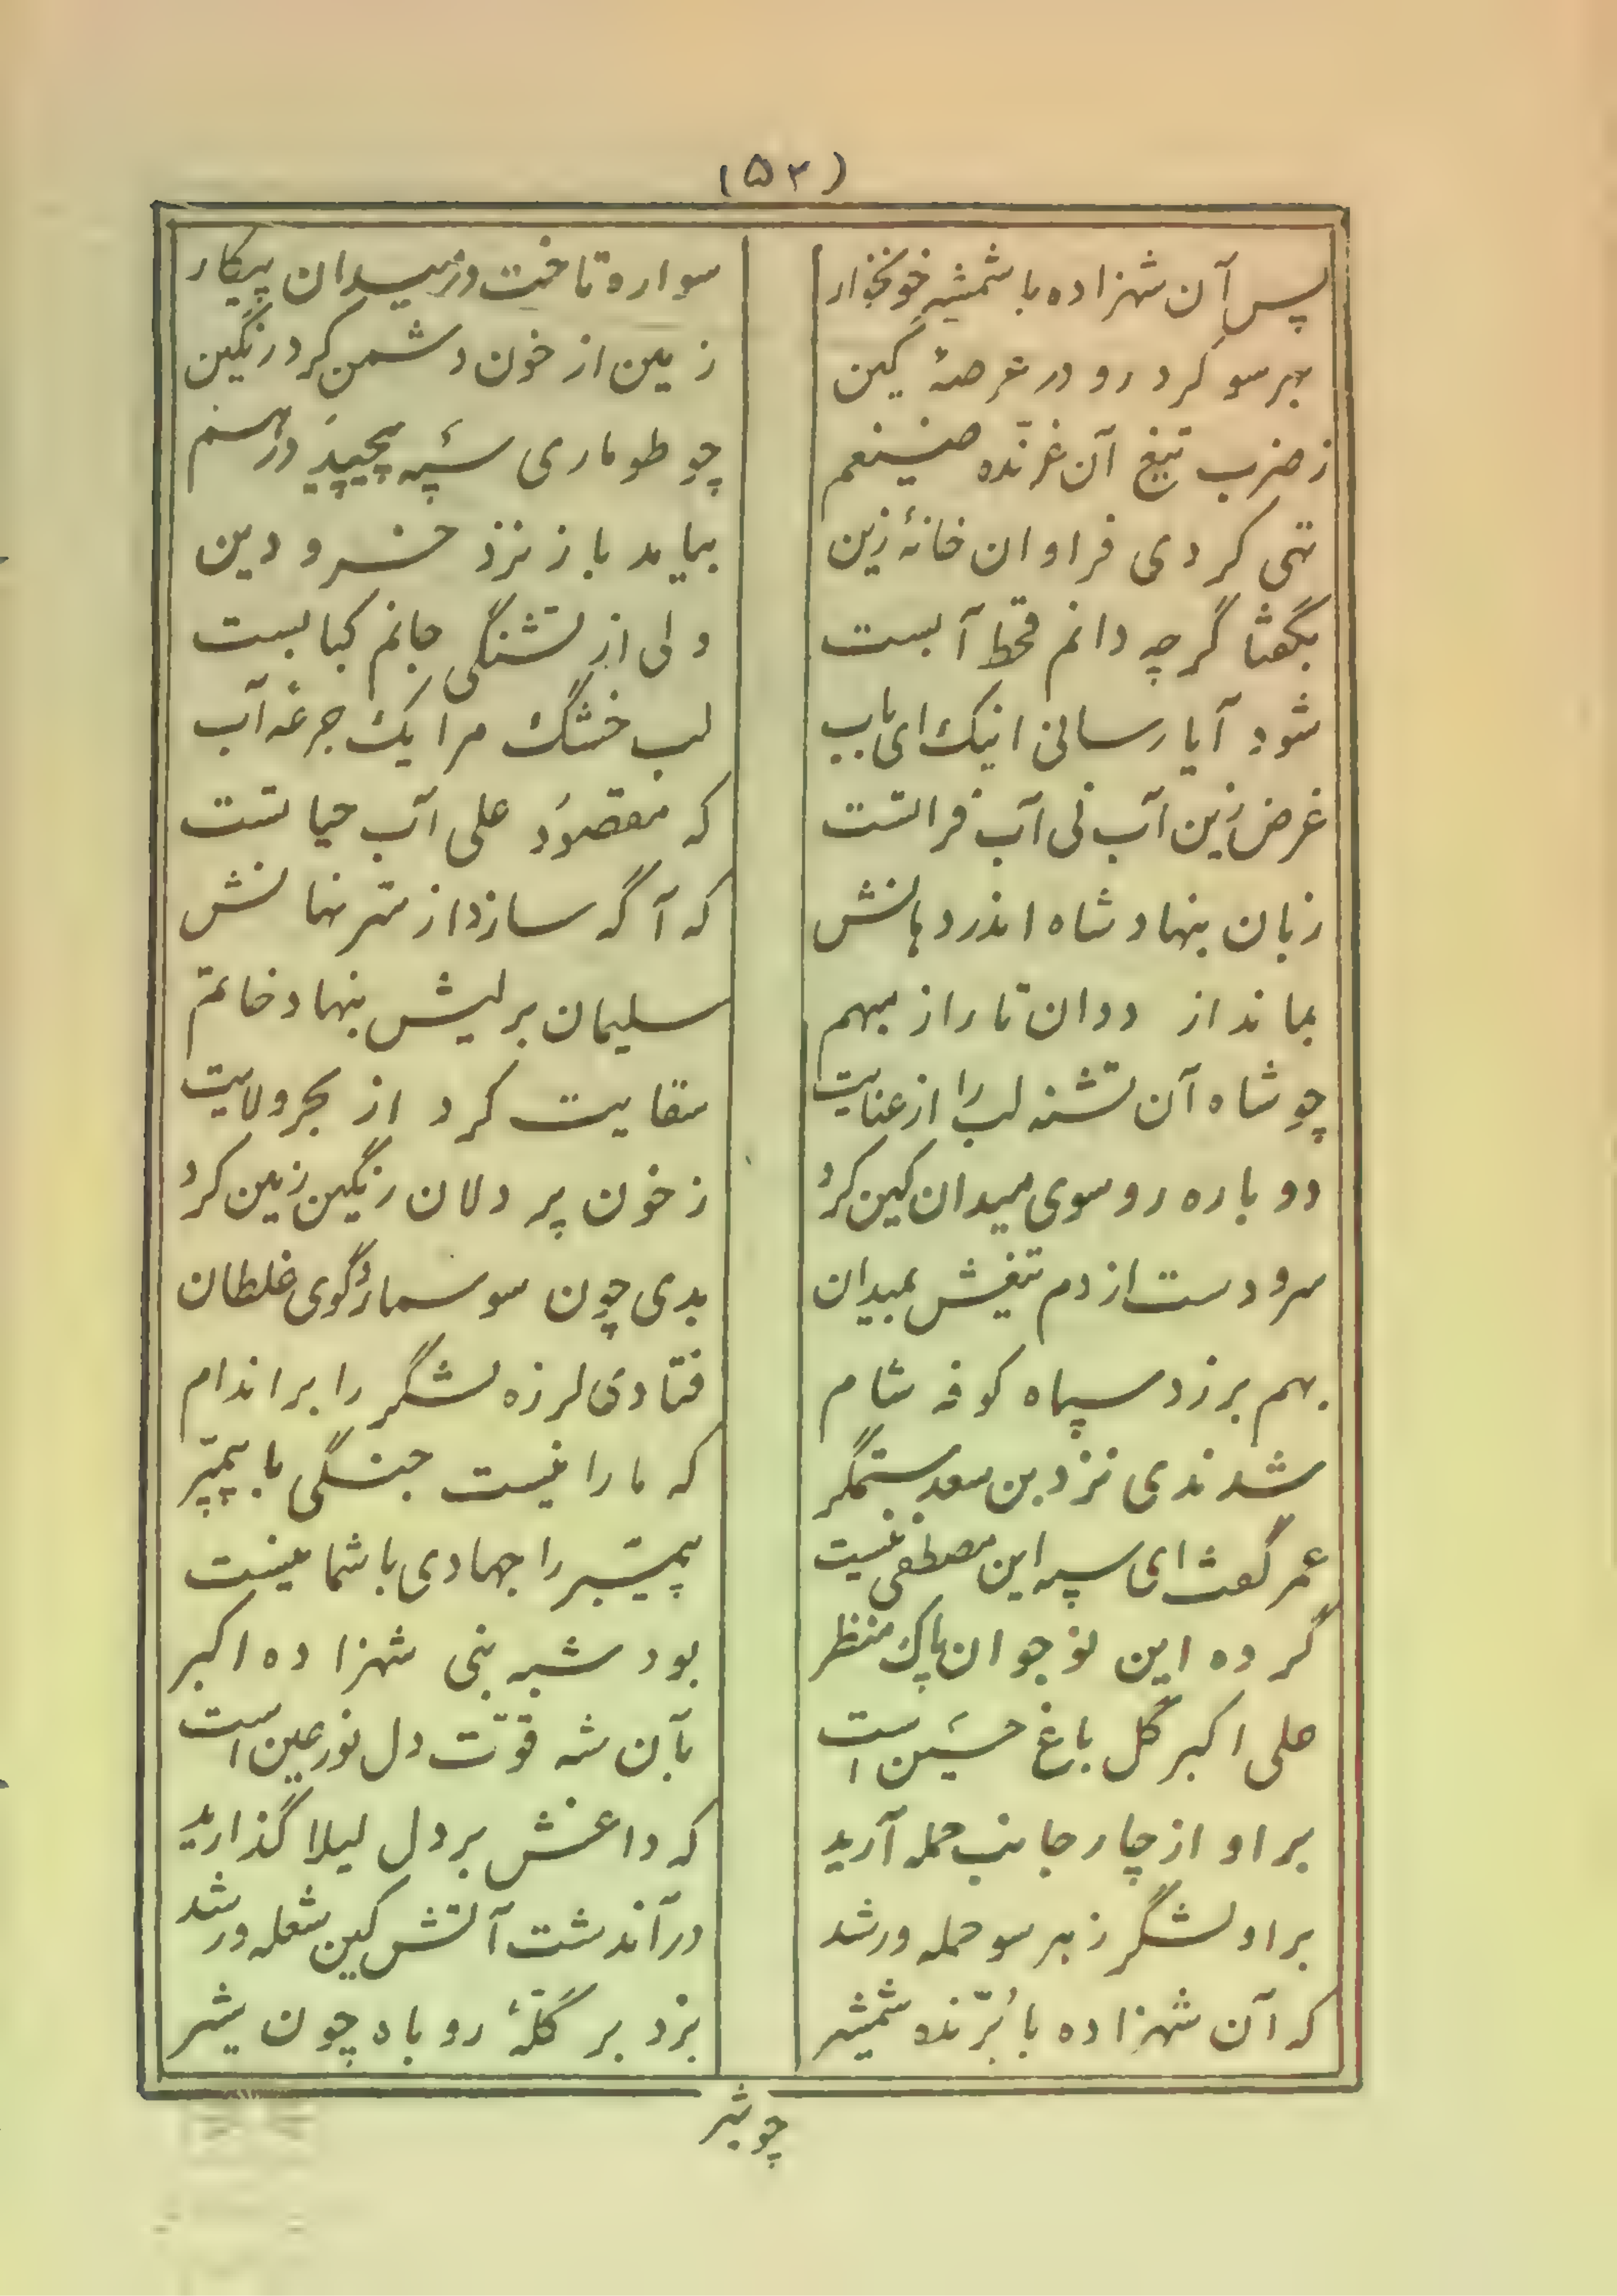 (۵۲)
پس آن شهزاده با شمشیر خونخوار سواره تاخت در میدان پیکار
بهر سو کرد رو در عرصهٔ کین زمین از خون دشمن کرد رنگین
ز ضرب تیغ آن غرّنده ضیغم چو طوماری سپه پیچید در هم
تهی کردی فراوان خانهٔ زین بیامد باز نزد خسرو دین
بگفتا گرچه دانم قحط آبست ولی از تشنگی جانم کبابست
شود آیا رسانی اینک ای باب لب خشگ مرا یک جرعه آب
غرض زین آب نی آب فراتست که مقصود علی آب حیاتست
زبان بنهاد شاه اندر دهانش که آگه سازد از سّر نهانش
بماند از ددان تا راز مبهم سلیمان بر لبش بنهاد خاتم
چو شاه آن تشنه لب را از عنایت سقایت کرد از بحر ولایت
دوباره رو سوی میدان کین کرد ز خون پر دلان رنگین زمین کرد
سر و دست از دم تیغش بمیدان بدی چون سوسمار و گوی غلطان
بهم بر زد سپاه کوفه شام فتادی لرزه لشگر را بر اندام
شدندی نزد بن سعد ستمگر که ما را نیست جنگی با پیمبّر
عمر گفت ای سپه این مصطفی نیست پیمبّر را جهادی با شما نیست
گر ده این نوجوان پاک منظر بود شبه نبی شهزاده اکبر
علی اکبر گل باغ حسین است بآن شه قوّت دل نور عین است
بر او از چار جانب حمله آرید که داغش بر دل لیلا گذارید
بر او لشگر ز هر سو حمله ور شد در آندشت آتش کین شعله ور شد
که آن شهزاده با بُرّنده شمشیر بزد بر گلّهٔ روباه چون شیر
چو شیر